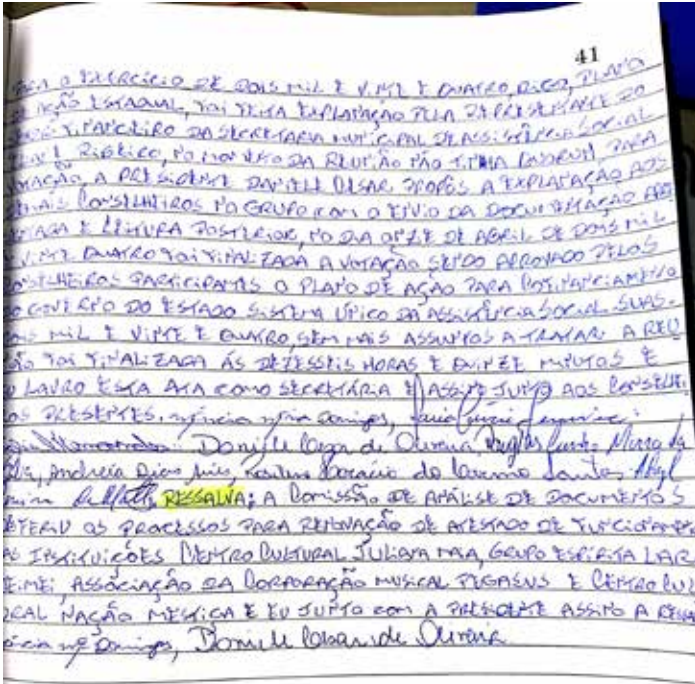 41
O EXERCÍCIO DE DOIS MIL E VINTE E QUATRO, DIGO, PLANO
DE AÇÃO ESTADUAL, FOI FEITA EXPLANAÇÃO PELA REPRESENTANTE DO
FINANCEIRO DA SECRETARIA MUNICIPAL DE ASSISTÊNCIA SOCIAL
RIBEIRO, NO MOMENTO DA REUNIÃO NÃO TINHA QUORUM, PARA
VOTAÇÃO, A PRESIDENTE DANIELE CESAR PROPÔS A EXPLANAÇÃO AOS
DEMAIS CONSELHEIROS NO GRUPO COM O ENVIO DA DOCUMENTAÇÃO
E LEITURA POSTERIOR, NO DIA ONZE DE ABRIL DE DOIS MIL
E VINTE QUATRO FOI FINALIZADA A VOTAÇÃO SENDO APROVADO PELOS
CONSELHEIROS PARTICIPANTES O PLANO DE AÇÃO PARA COFINANCIAMENTO
DO GOVERNO DO ESTADO SISTEMA ÚNICO DA ASSISTÊNCIA SOCIAL. SUAS.
DOIS MIL E VINTE E QUATRO, SEM MAIS ASSUNTOS A TRATAR A REU
NIÃO FOI FINALIZADA ÁS DEZESSEIS HORAS E QUINZE MINUTOS E
EU LAVRO ESTA ATA COMO SECRETÁRIA E ASSINO JUNTO AOS CONSELHEI
ROS PRESENTES.
Daniele Cesar de Oliveira,
Andreia Dias
RESSALVA; A COMISSÃO DE ANÁLISE DE DOCUMENTOS
OS PROCESSOS PARA RENOVAÇÃO DE ATESTADO DE FUNCIONAMEN
AS INSTITUIÇÕES CENTRO CULTURAL JULIANA MAA, GRUPO ESPÍRITA LAR
MEIMEI, ASSOCIAÇÃO DA CORPORAÇÃO MUSICAL PEGASUS E CENTRO CUL
URAL NAÇÃO MESTIÇA E EU JUNTO COM A PRESIDENTE ASSINO A
Daniele Cesar de Oliveira